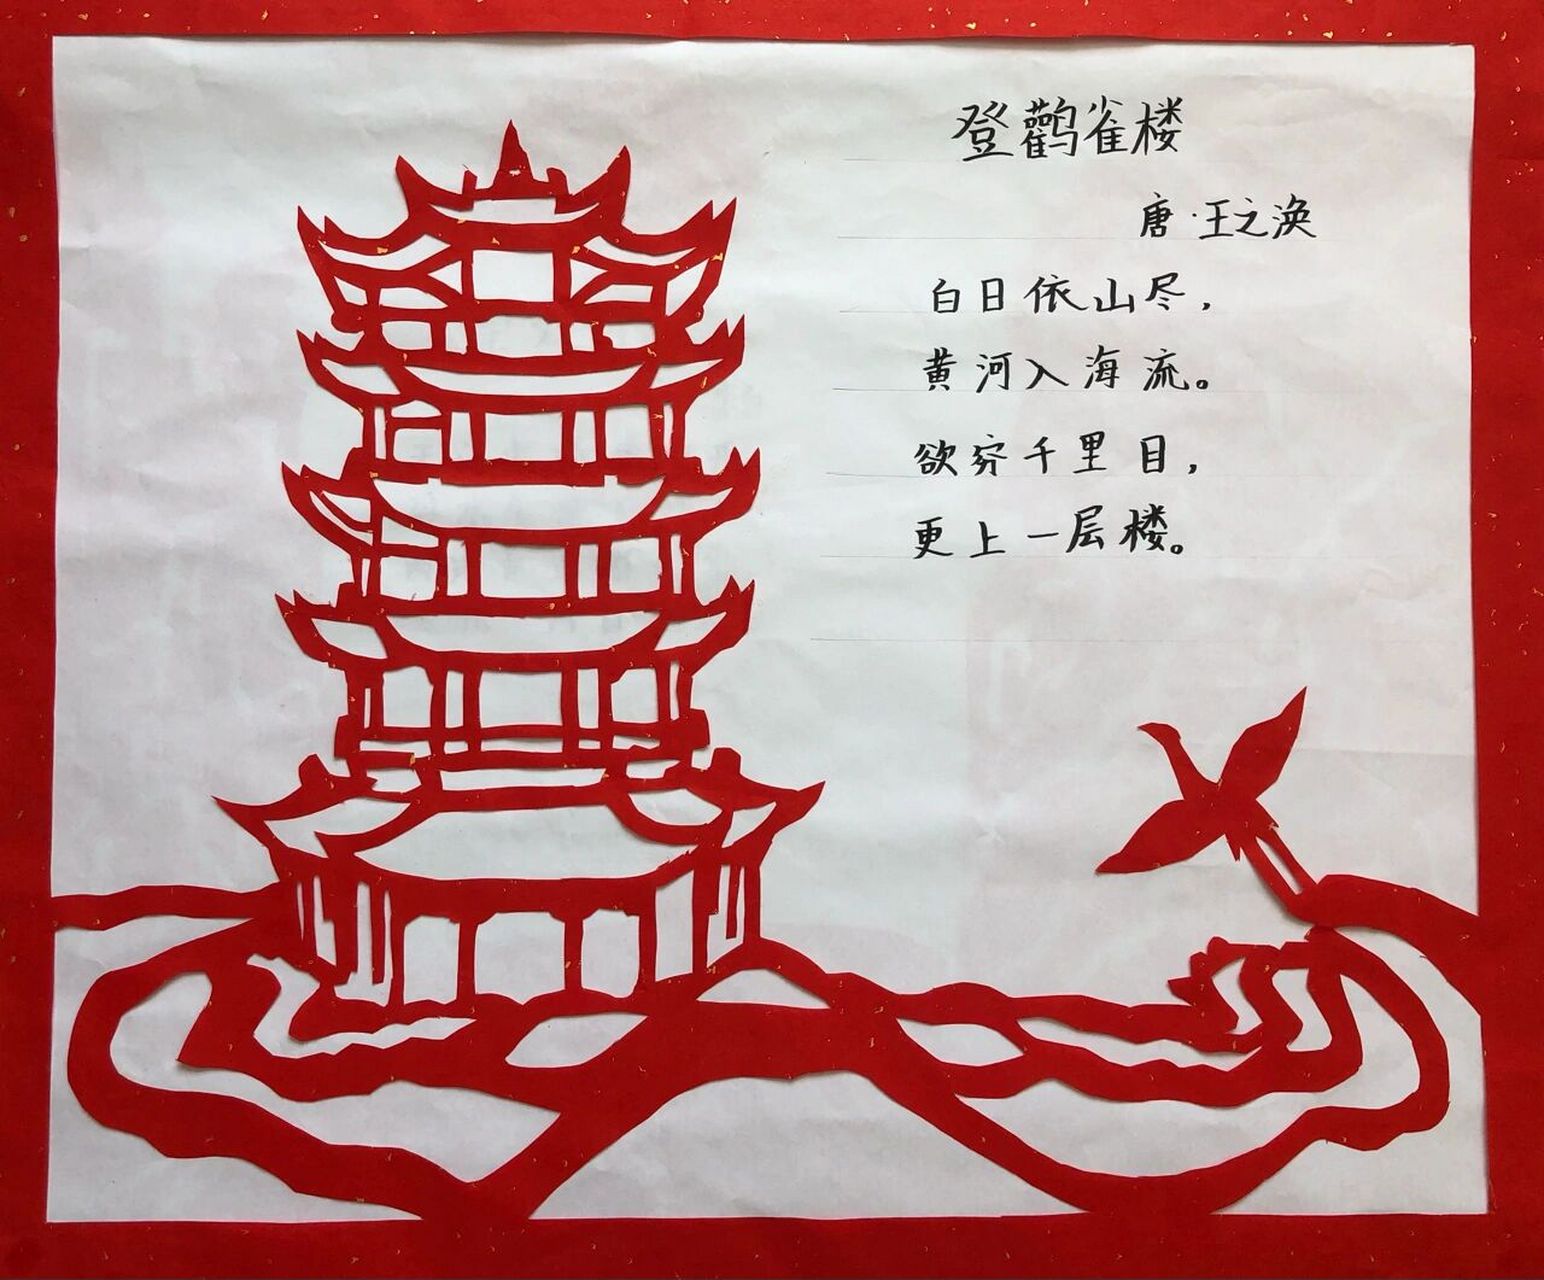 登鹳雀楼
唐·王之涣
白日依山尽,
黄河入海流。
欲穷千里目,
更上一层楼。